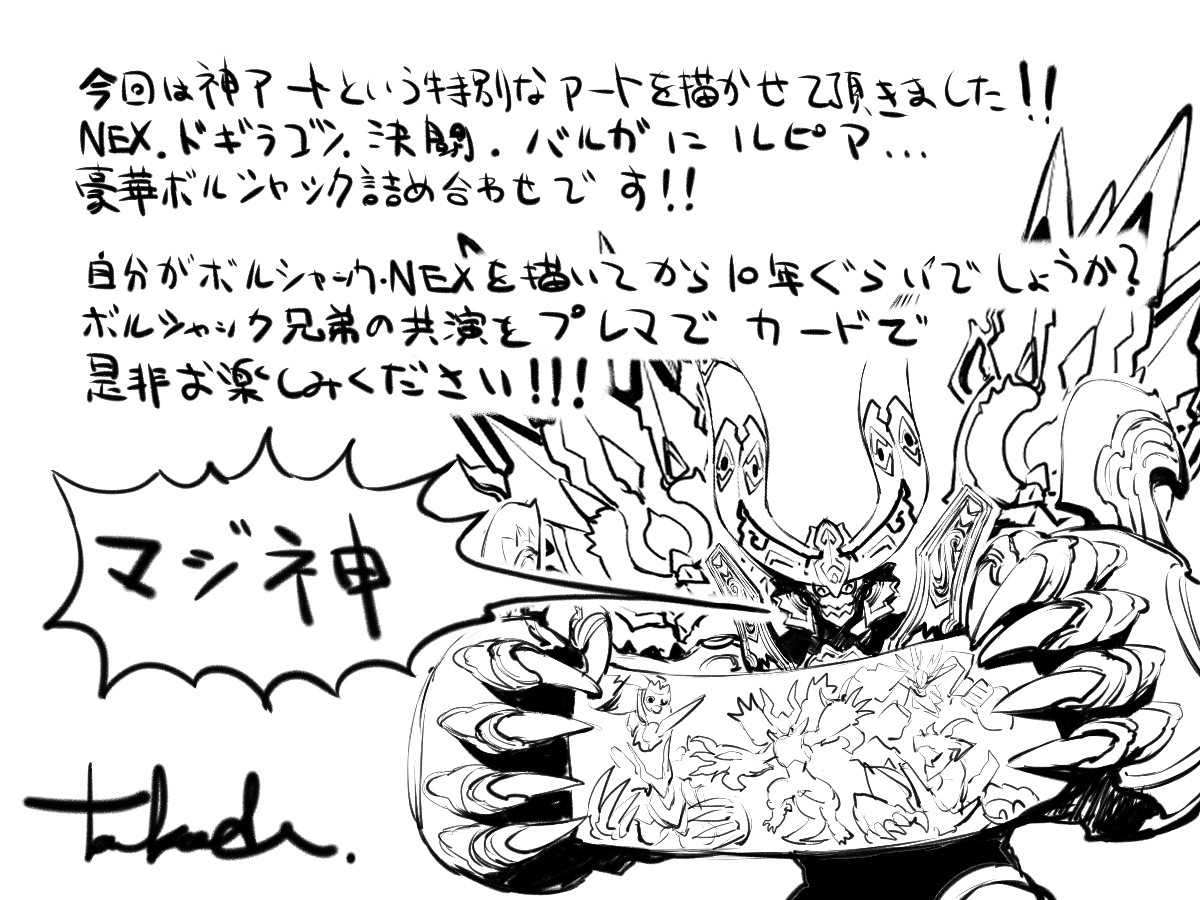 今回は神アートという特別なアートを描かせて頂きました!!
NEX.ドギラゴン.決闘.バルガにルピア...
豪華ボルシャック詰め合わせです!!
自分がボルシャック・NEXを描いてから10年ぐらいでしょうか?
ボルシャック兄弟の共演をプレマでカードで
是非お楽しみください!!!
マジ神